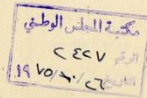 مكتبة المجلس الوطني
الرقم ٢٤٢٧
التاريخ ٢٦/١٠/١٩٧٥